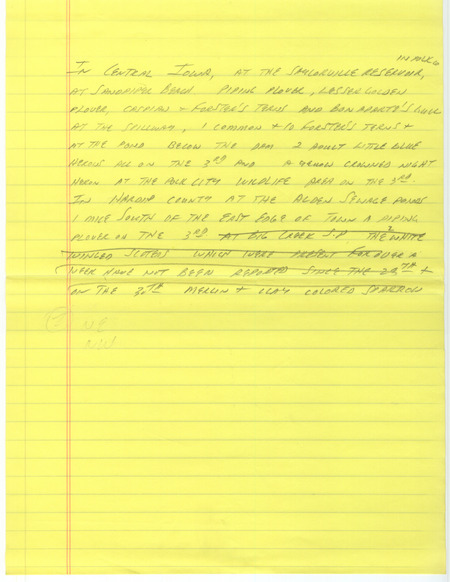 IN POLK Co
IN CENTRAL IOWA, AT THE SAYLORVILLE RESERVOIR,
AT SANDPIPER BEACH PIPING PLOVER, LESSER GOLDEN
PLOVER, CASPIAN + FORSTER'S TERNS AND BONAPARTE'S GULL
AT THE SPILLWAY, 1 COMMON + 10 FORSTER'S TERNS +
AT THE POND BELOW THE DAM 2 ADULT LITTLE BLUE
HERONS ALL ON THE 3RD AND A YELLOW CROWNED NIGHT
HERON AT THE POLK CITY WILDLIFE AREA ON THE 3RD.
IN HARDIN COUNTY AT THE ALDEN SEWAGE PONDS
1 MILE SOUTH OF THE EAST EDGE OF TOWN A PIPING
PLOVER ON THE 3RD AT BIG CREEK S.P. THE 2 WHITE
WINGED SCOTERS WHICH WERE PRESENT FOR OVER A
WEEK HAVE NOT BEEN REPORTED SINCE THE 29TH +
ON THE 30TH MERLIN + CLAY COLORED SPARROW
NE
NW